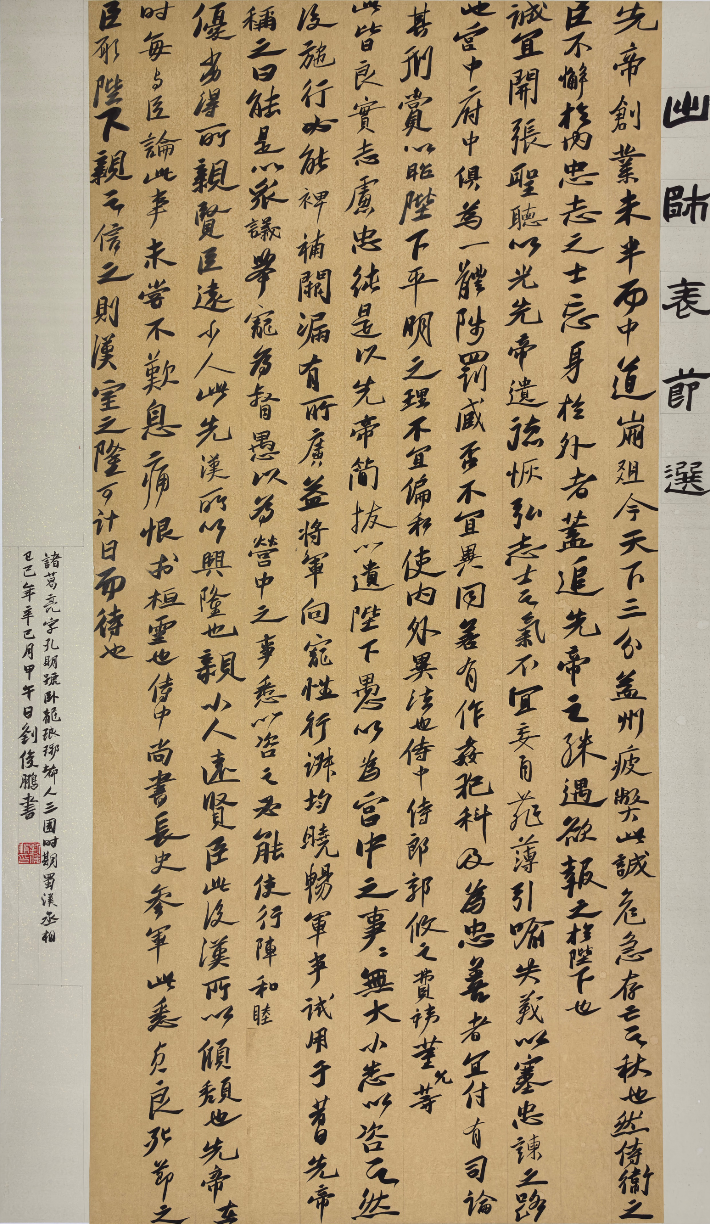 出師表節選
先帝創業未半而中道崩殂今天下三分益州疲獘此誠危急存亡之秋也然侍衞之
臣不懈於內忠志之士忘身於外者蓋追先帝之殊遇欲報之於陛下也
誠宜開張聖聽以光先帝遺德恢弘志士之氣不宜妄自菲薄引喻失義以塞忠諫之路
也宮中府中俱為一體陟罰臧否不宜異同若有作姦犯科及為忠善者宜付有司論
其刑賞以昭陛下平明之理不宜偏私使內外異法也侍中侍郎郭攸之費禕董允等
此皆良實志慮忠純是以先帝簡拔以遺陛下愚以為宮中之事事無大小悉以咨之然
後施行必能裨補闕漏有所廣益將軍向寵性行淑均曉暢軍事試用于昔日先帝
稱之曰能是以衆議舉寵為督愚以為營中之事悉以咨之必能使行陣和睦
優劣得所親賢臣遠小人此先漢所以興隆也親小人遠賢臣此後漢所以傾頹也先帝在
時每與臣論此事未嘗不歎息痛恨於桓靈也侍中尚書長史參軍此悉貞良死節之
臣願陛下親之信之則漢室之隆可計日而待也
諸葛亮字孔明號卧龍琅琊人三國時期蜀漢丞相
乙巳年辛巳月甲午日劉俊鵬書